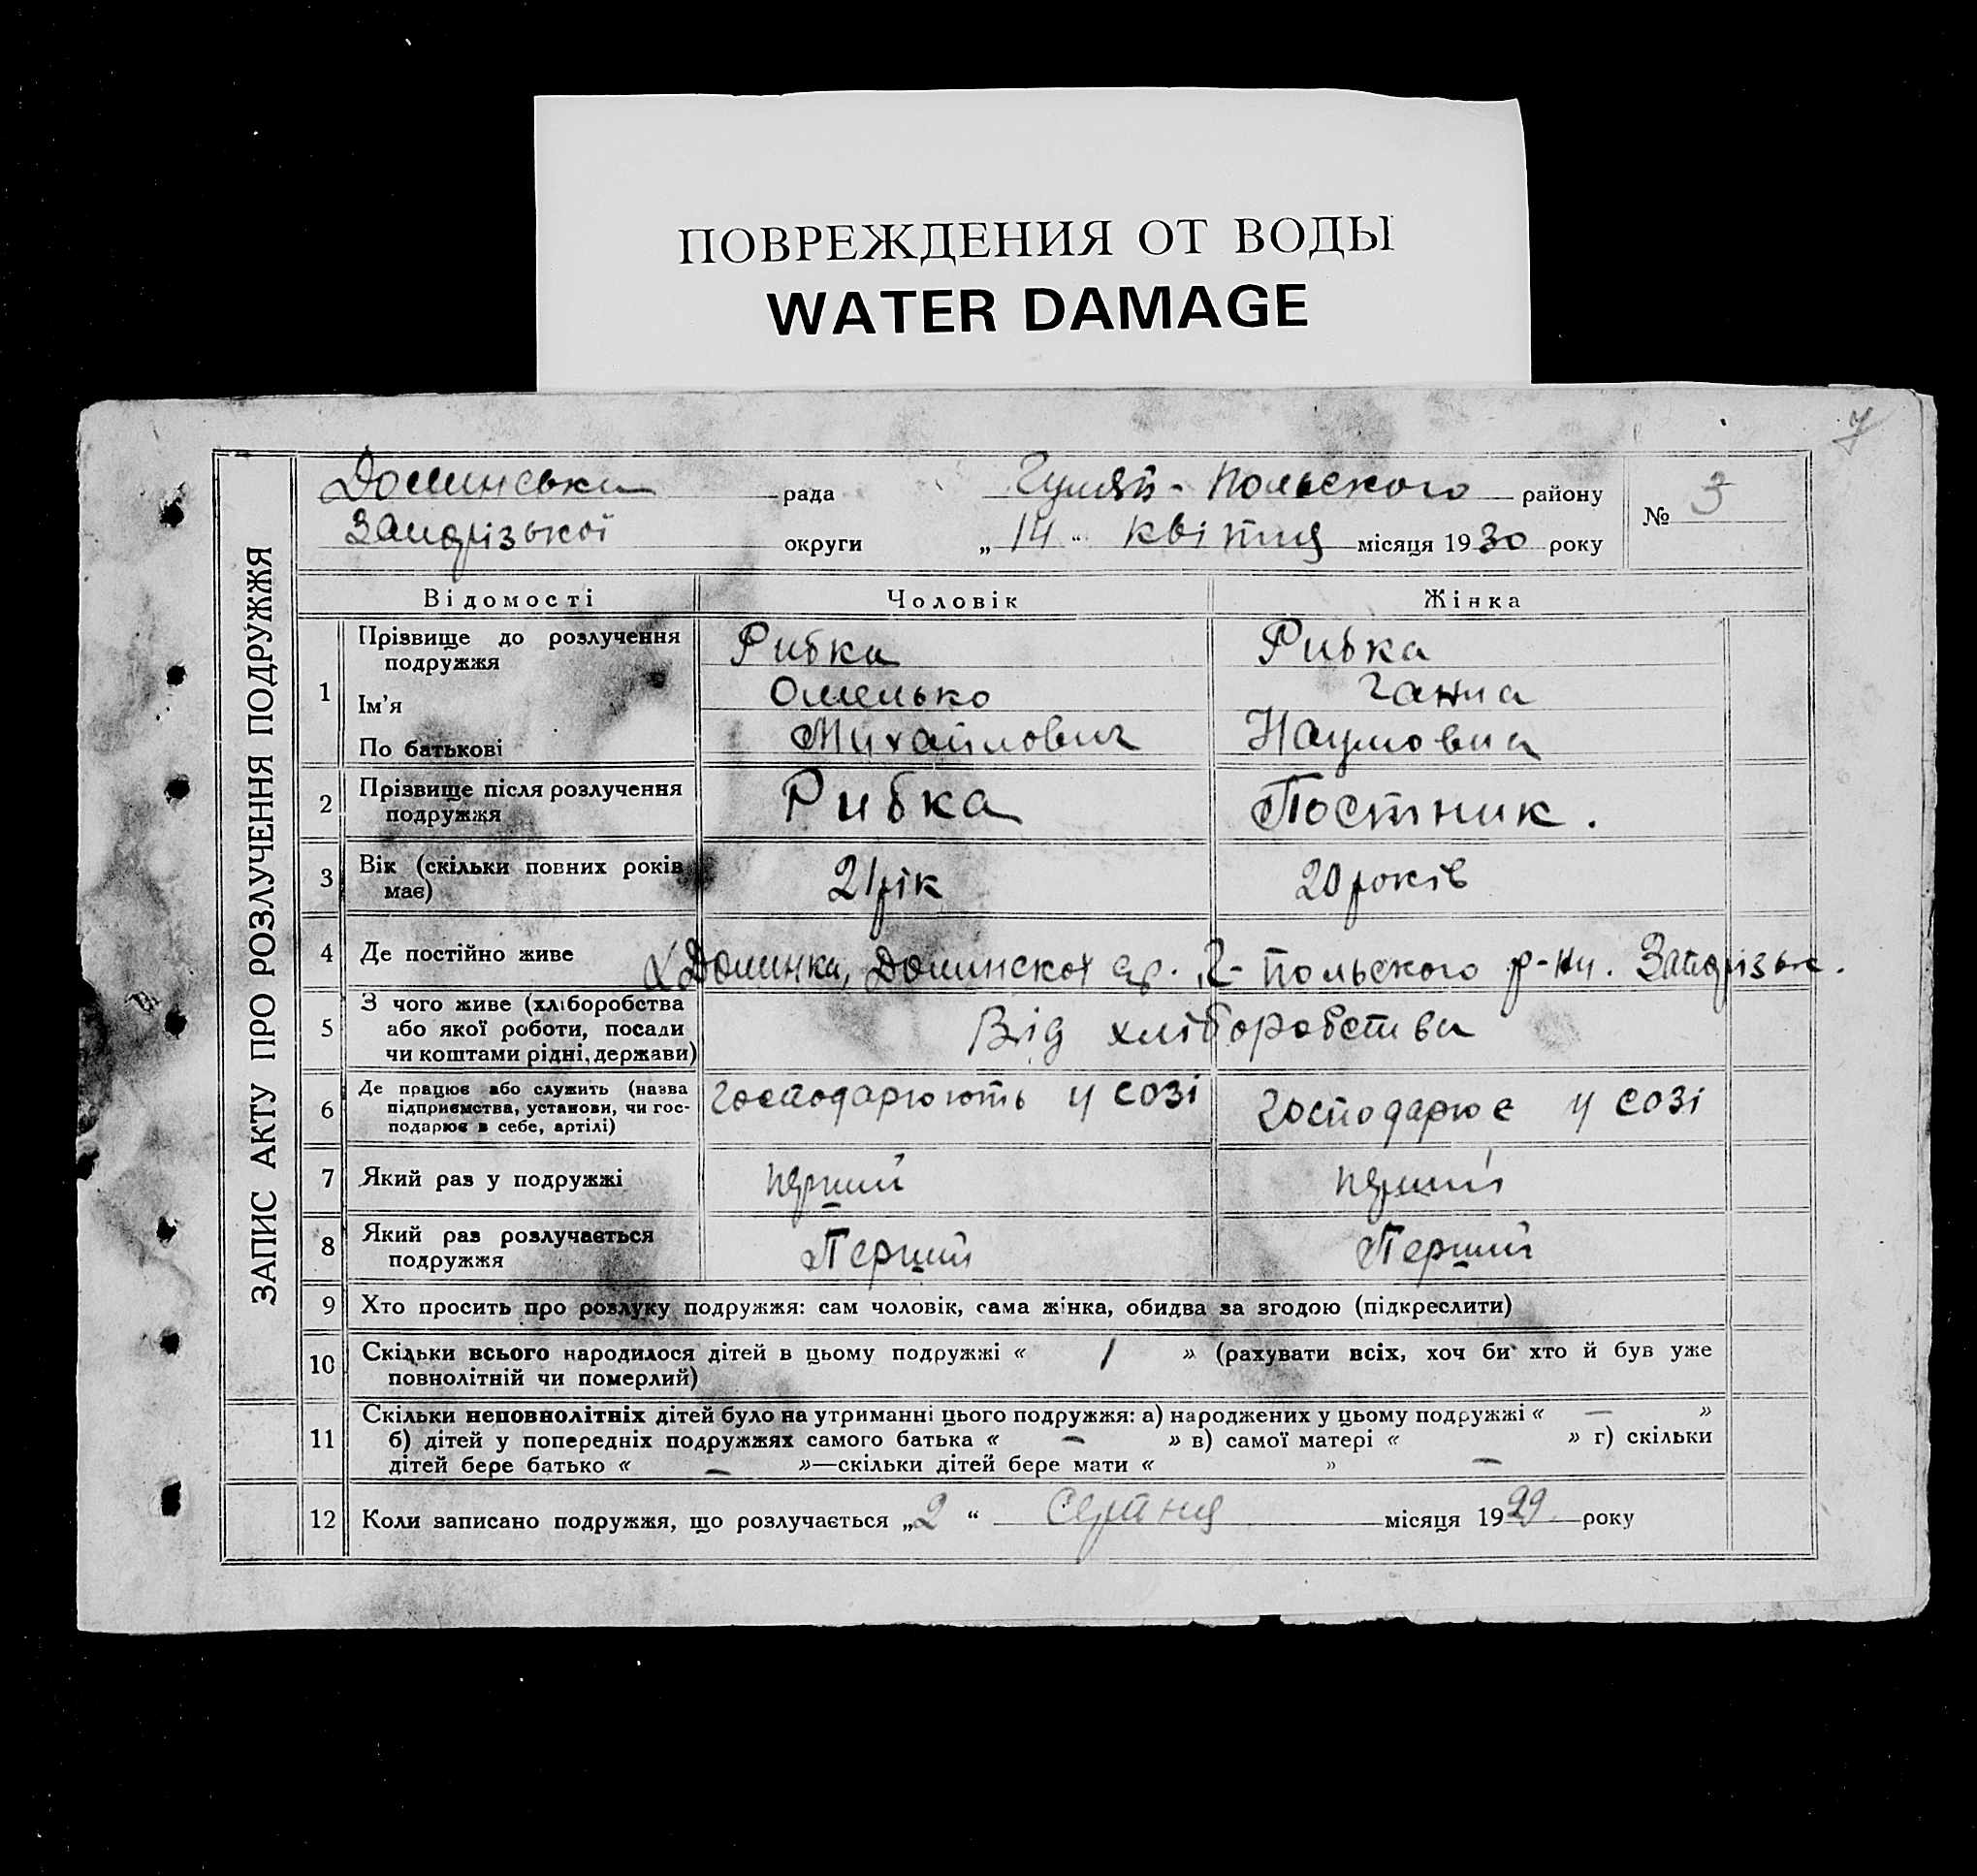 ПОВРЕЖДЕНИЯ ОТ ВОДЫ
WATER DAMAGE
7
ЗАПИС АКТУ ПРО РОЗЛУЧЕННЯ ПОДРУЖЖЯ
Долинська рада Гуляй-Польского району № 3
Запорізької округи „14“ квітня місяця 1930 року
Відомості Чоловік Жінка
1 Прізвище до розлучення подружжя Рибка Рибка
Ім'я Омелько Ганна
По батькові Михайлович Наумовна
2 Прізвище після розлучення подружжя Рибка Постник.
3 Вік (скільки повних років має) 21 рік 20 років
4 Де постійно живе Долинка, Долинскої с/р. Г-Польского р-ну. Запорізьк.
5 З чого живе (хліборобства або якої роботи, посади чи коштами рідні, держави) Від хліборобства
6 Де працює або служить (назва підприємства, установи, чи господарює в себе, артілі) господарюють у созі Господарює у созі
7 Який раз у подружжі перший перший
8 Який раз розлучається подружжя Перший Перший
9 Хто просить про розлуку подружжя: сам чоловік, сама жінка, обидва за згодою (підкреслити)
10 Скільки всього народилося дітей в цьому подружжі « 1 » (рахувати всіх, хоч би хто й був уже
повнолітній чи померлий)
11 Скільки неповнолітніх дітей було на утриманні цього подружжя: а) народжених у цьому подружжі « — »
б) дітей у попередніх подружжях самого батька « — » в) самої матері « » г) скільки
дітей бере батько « — »—скільки дітей бере мати « » —
12 Коли записано подружжя, що розлучається „2“ Серпня місяця 1929 року